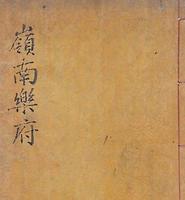 嶺南樂府